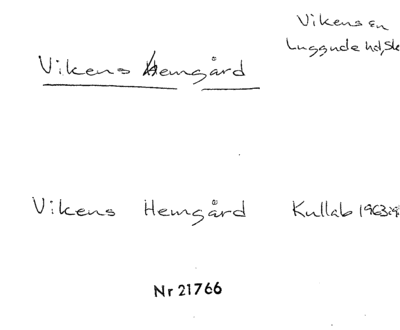 Vikens sn
Luggude hd, Sk
Vikens Hemgård
Vikens Hemgård Kullab 1963
Nr 21766